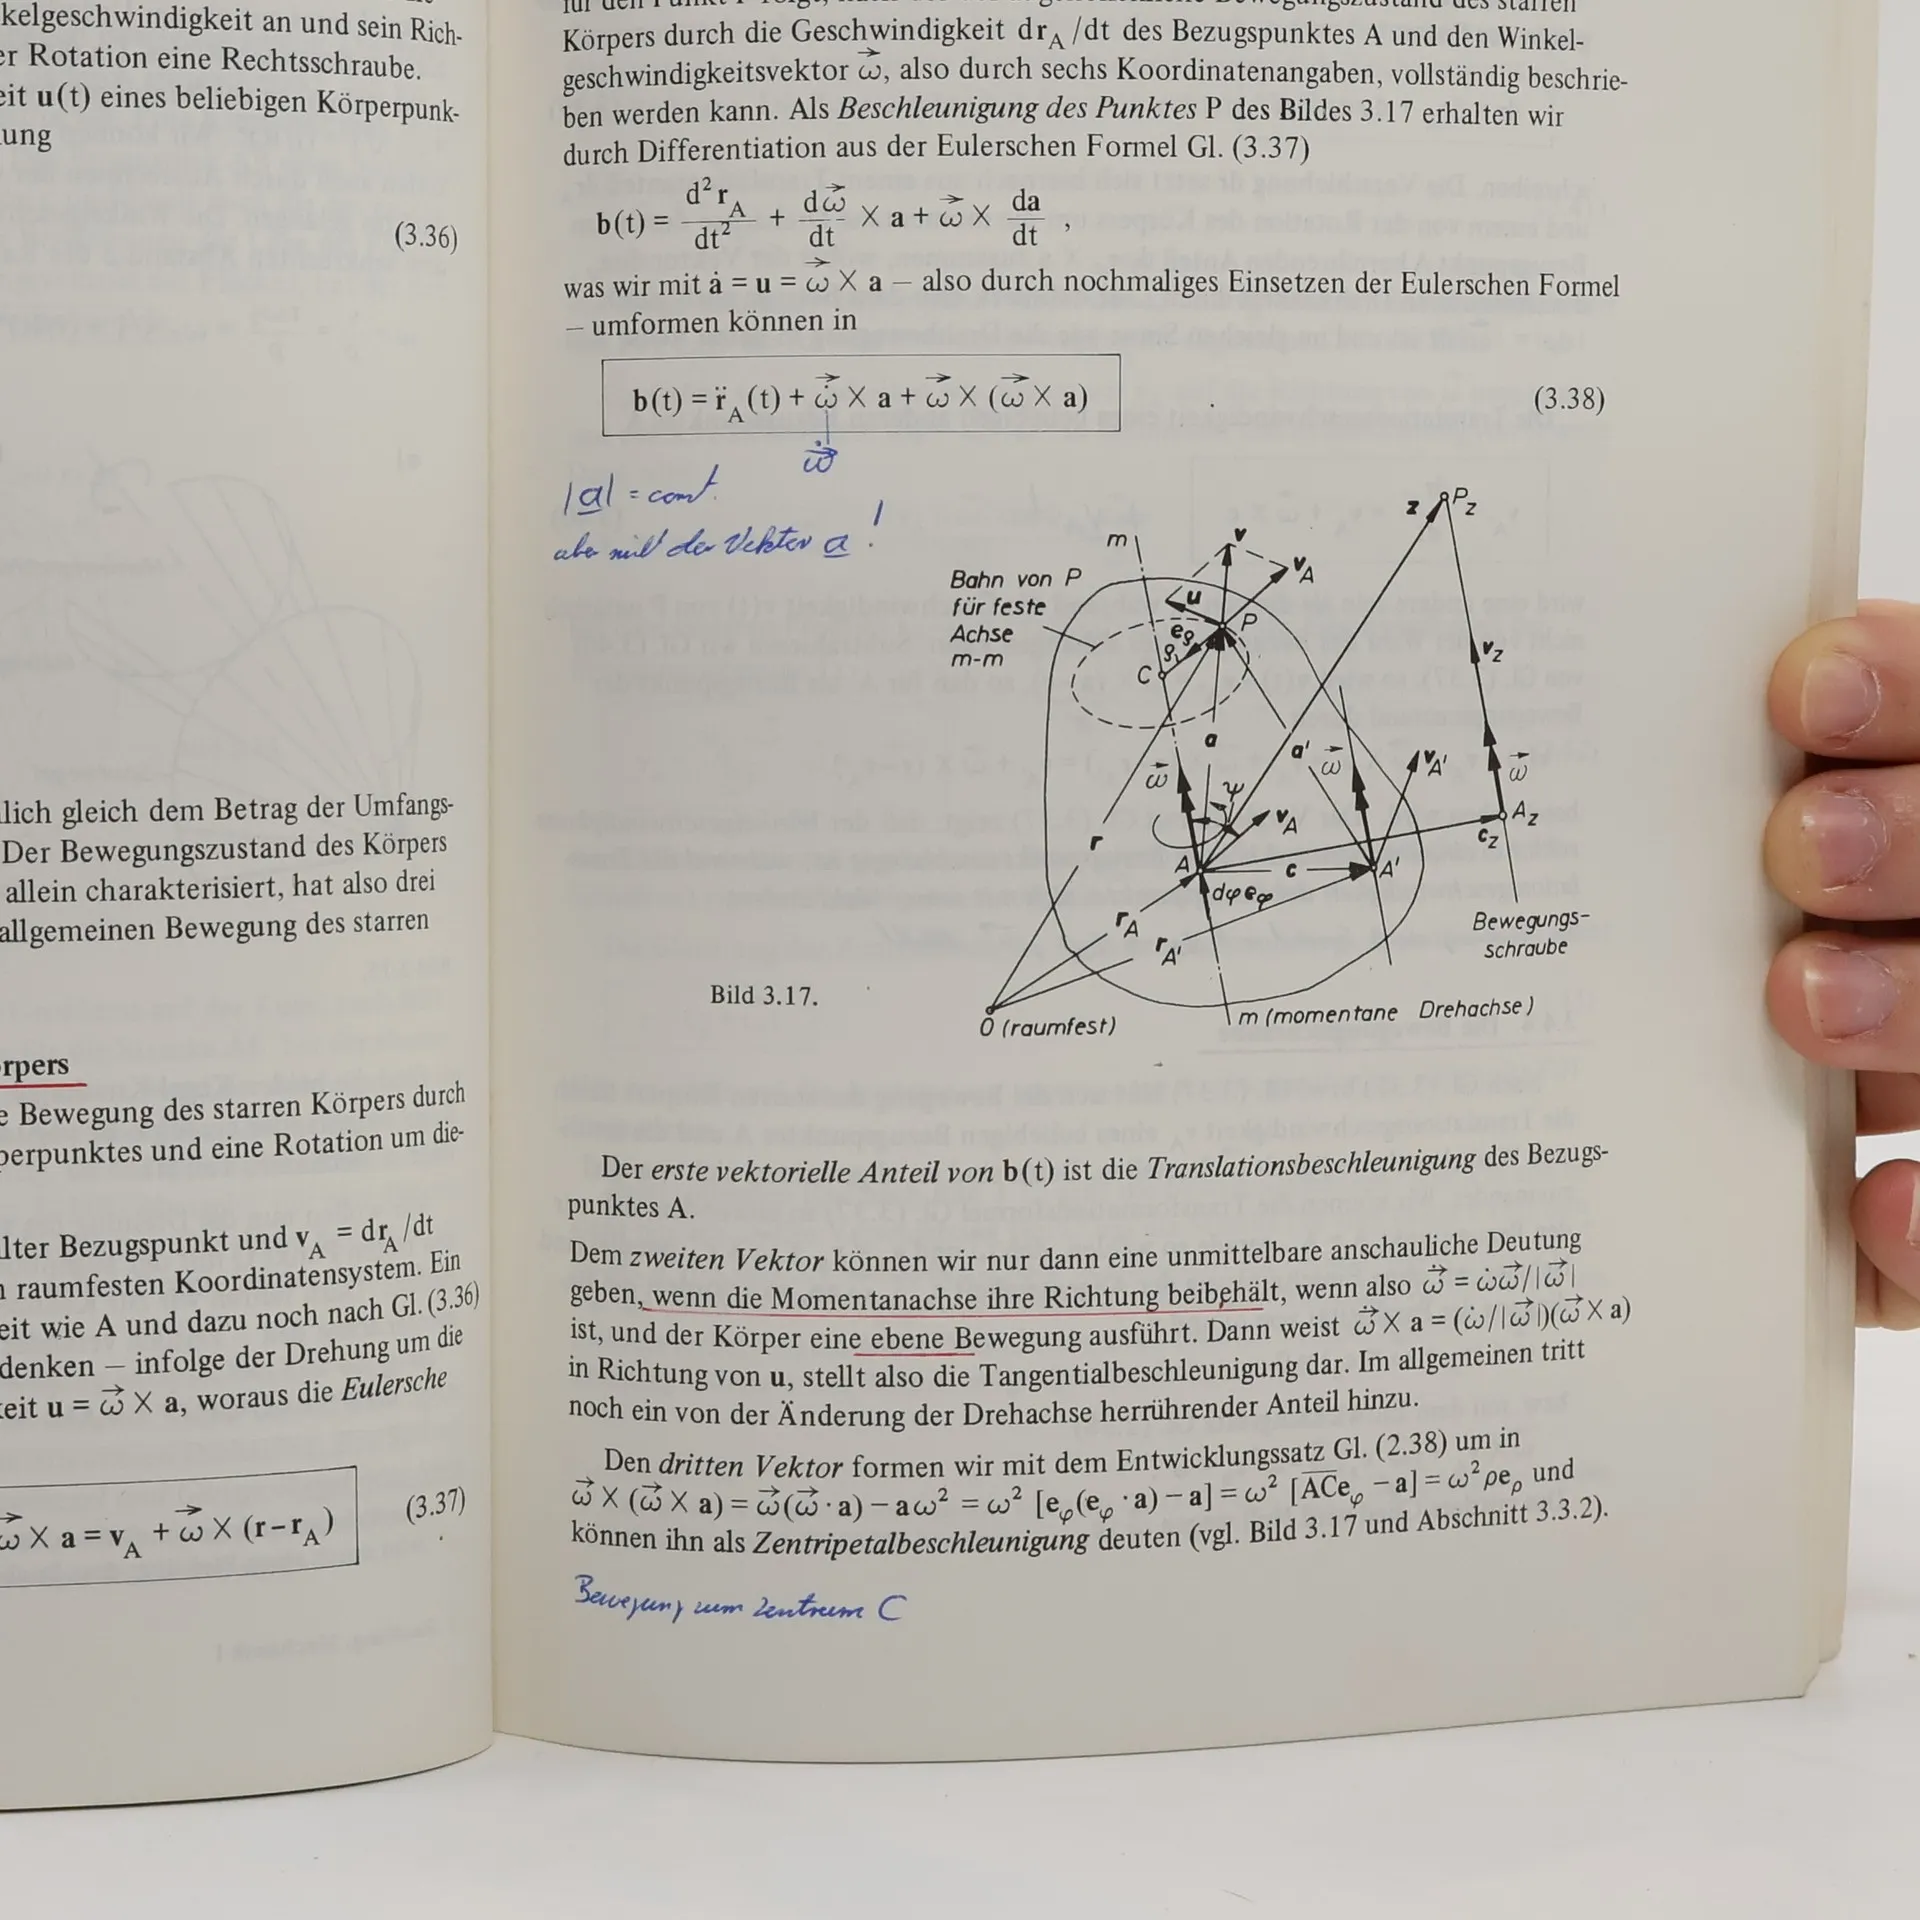 kelgeschwindigkeit an und sein Rich-
er Rotation eine Rechtsschraube.
eit u(t) eines beliebigen Körperpunk-
ung
(3.36)
lich gleich dem Betrag der Umfangs-
Der Bewegungszustand des Körpers
allein charakterisiert, hat also drei
allgemeinen Bewegung des starren
rpers
e Bewegung des starren Körpers durch
perpunktes und eine Rotation um die-
lter Bezugspunkt und v_A = dr_A/dt
raumfesten Koordinatensystem. Ein
eit wie A und dazu noch nach Gl. (3.36)
denken – infolge der Drehung um die
eit u = ω⃗ × a, woraus die Eulersche
ω⃗ × a = v_A + ω⃗ × (r − r_A)
(3.37)
Körpers durch die Geschwindigkeit dr_A/dt des Bezugspunktes A und den Winkel-
geschwindigkeitsvektor ω⃗, also durch sechs Koordinatenangaben, vollständig beschrie-
ben werden kann. Als Beschleunigung des Punktes P des Bildes 3.17 erhalten wir
durch Differentiation aus der Eulerschen Formel Gl. (3.37)
b(t) = d²r_A/dt² + dω⃗/dt × a + ω⃗ × da/dt ,
was wir mit ȧ = u = ω⃗ × a – also durch nochmaliges Einsetzen der Eulerschen Formel
– umformen können in
b(t) = r̈_A(t) + ω⃗̇ × a + ω⃗ × (ω⃗ × a)
(3.38)
ω⃗̇
|a| = const.
aber nicht der Vektor a !
Bahn von P
für feste
Achse
m-m
m
v
v_A
u
P
e_ρ
ρ
C
z
P_z
v_z
a
a'
ω⃗
ψ
ω⃗
v_A'
ω⃗
v_A
A_z
c_z
r
A
c
A'
dφe_φ
r_A
r_A'
Bewegungs-
schraube
Bild 3.17.
0 (raumfest)
m (momentane Drehachse)
Der erste vektorielle Anteil von b(t) ist die Translationsbeschleunigung des Bezugs-
punktes A.
Dem zweiten Vektor können wir nur dann eine unmittelbare anschauliche Deutung
geben, wenn die Momentanachse ihre Richtung beibehält, wenn also ω⃗̇ = ω̇ω⃗/|ω⃗|
ist, und der Körper eine ebene Bewegung ausführt. Dann weist ω⃗̇ × a = (ω̇/|ω⃗|)(ω⃗ × a)
in Richtung von u, stellt also die Tangentialbeschleunigung dar. Im allgemeinen tritt
noch ein von der Änderung der Drehachse herrührender Anteil hinzu.
Den dritten Vektor formen wir mit dem Entwicklungssatz Gl. (2.38) um in
ω⃗ × (ω⃗ × a) = ω⃗(ω⃗ · a) − aω² = ω² [e_φ(e_φ · a) − a] = ω² [A̅C̅e_φ − a] = ω²ρe_ρ und
können ihn als Zentripetalbeschleunigung deuten (vgl. Bild 3.17 und Abschnitt 3.3.2).
Bewegung zum Zentrum C